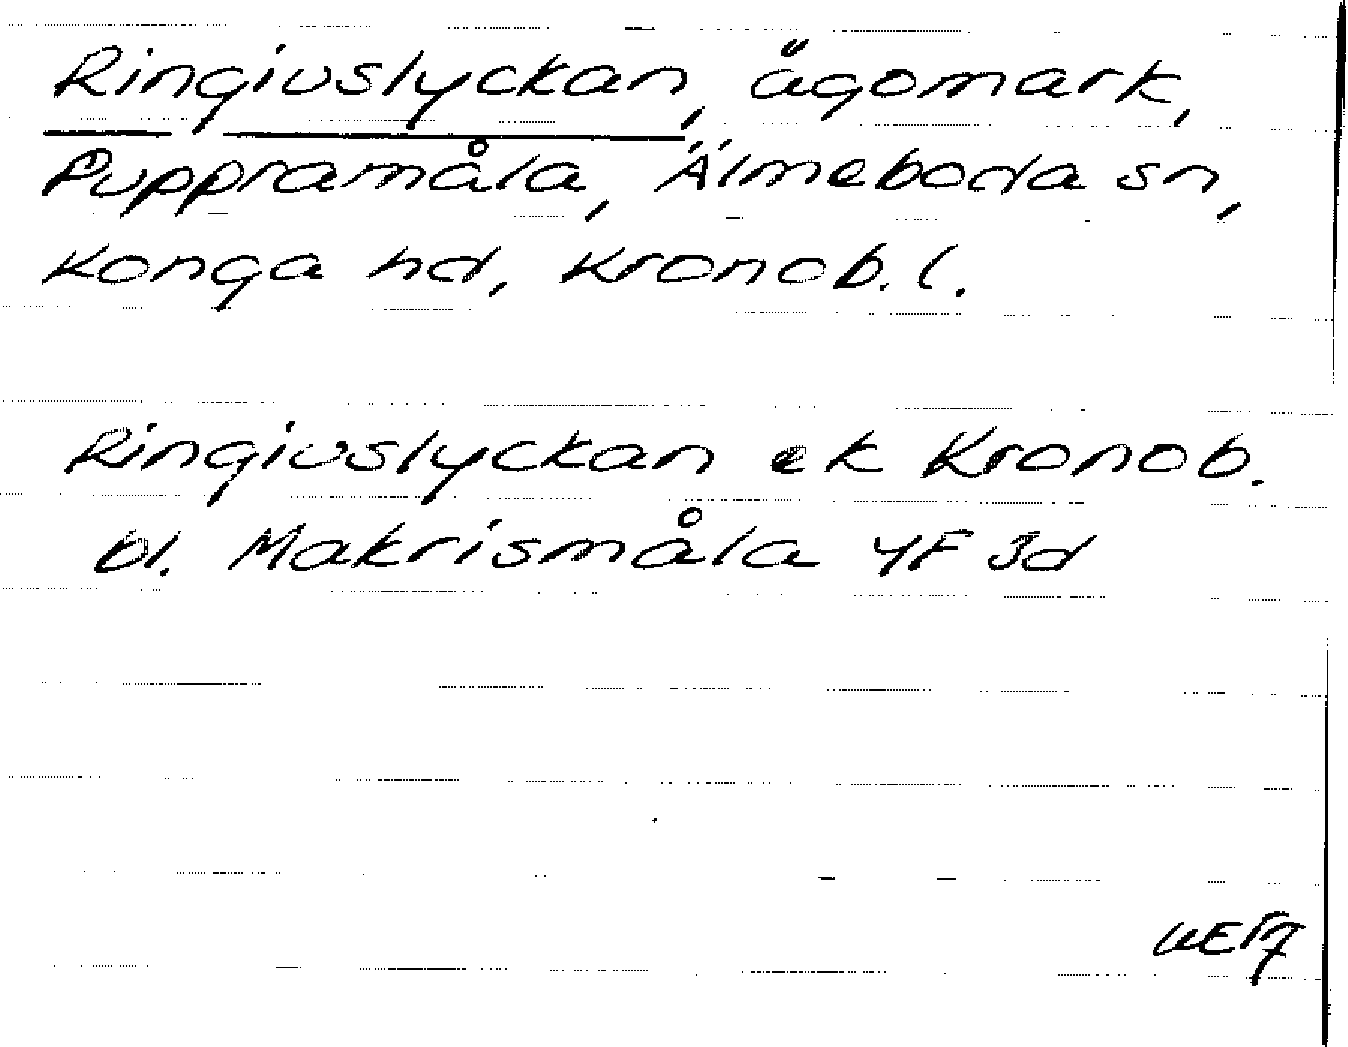 Ringiuslyckan, ägomark,
Puppramåla, Älmeboda sn,
Konga hd, Kronob. l.
Ringiuslyckan ek Kronob.
bl. Makrismåla 4F 3d